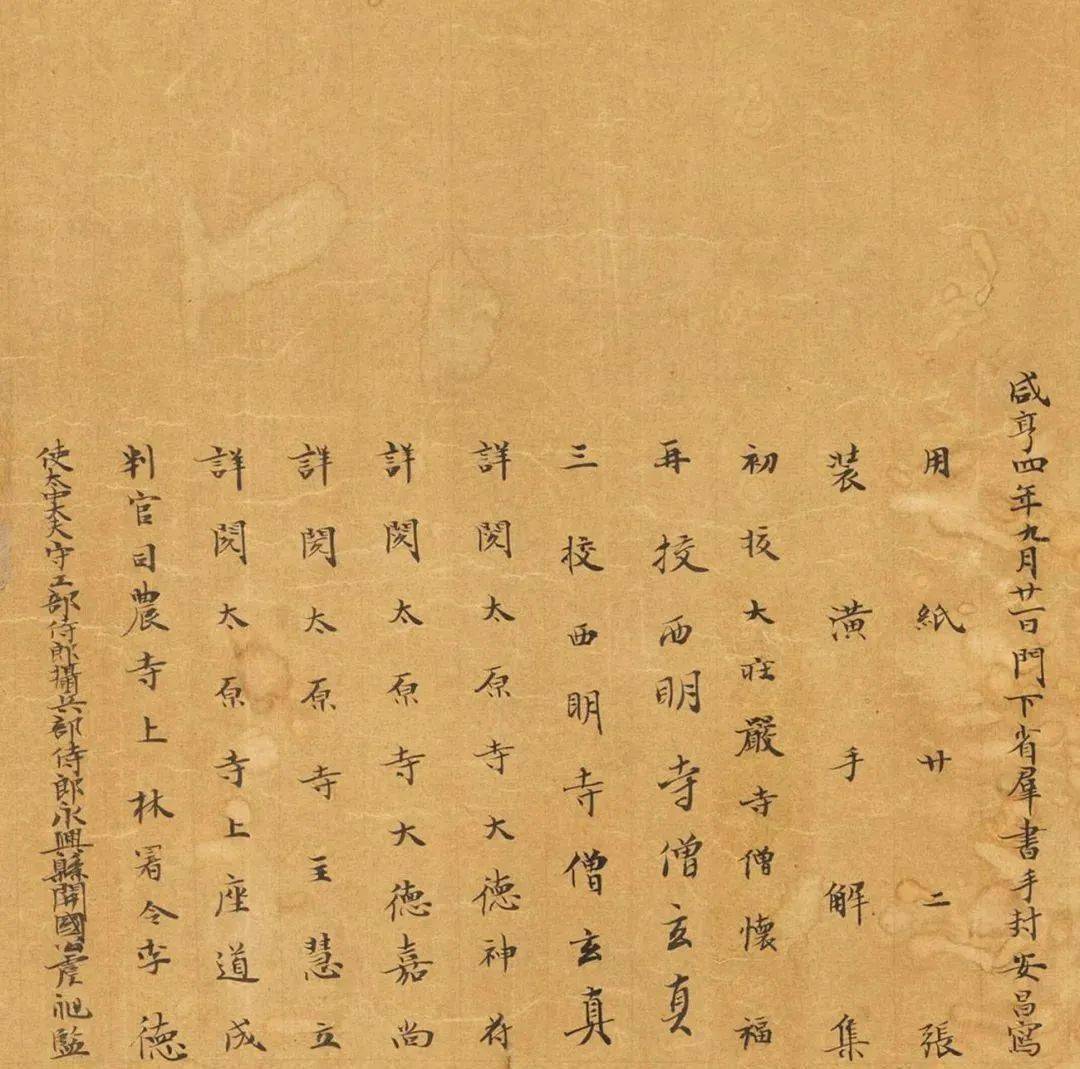 咸亨四年九月廿一日門下省羣書手封安昌寫
用紙廿二張
裝潢手解集
初校大莊嚴寺僧懷福
再校西明寺僧玄真
三校西明寺僧玄真
詳閱太原寺大德神符
詳閱太原寺大德嘉尚
詳閱太原寺主慧立
詳閱太原寺上座道成
判官司農寺上林署令李德
使太中大夫守工部侍郎攝兵部侍郎永興縣開國公虞昶監